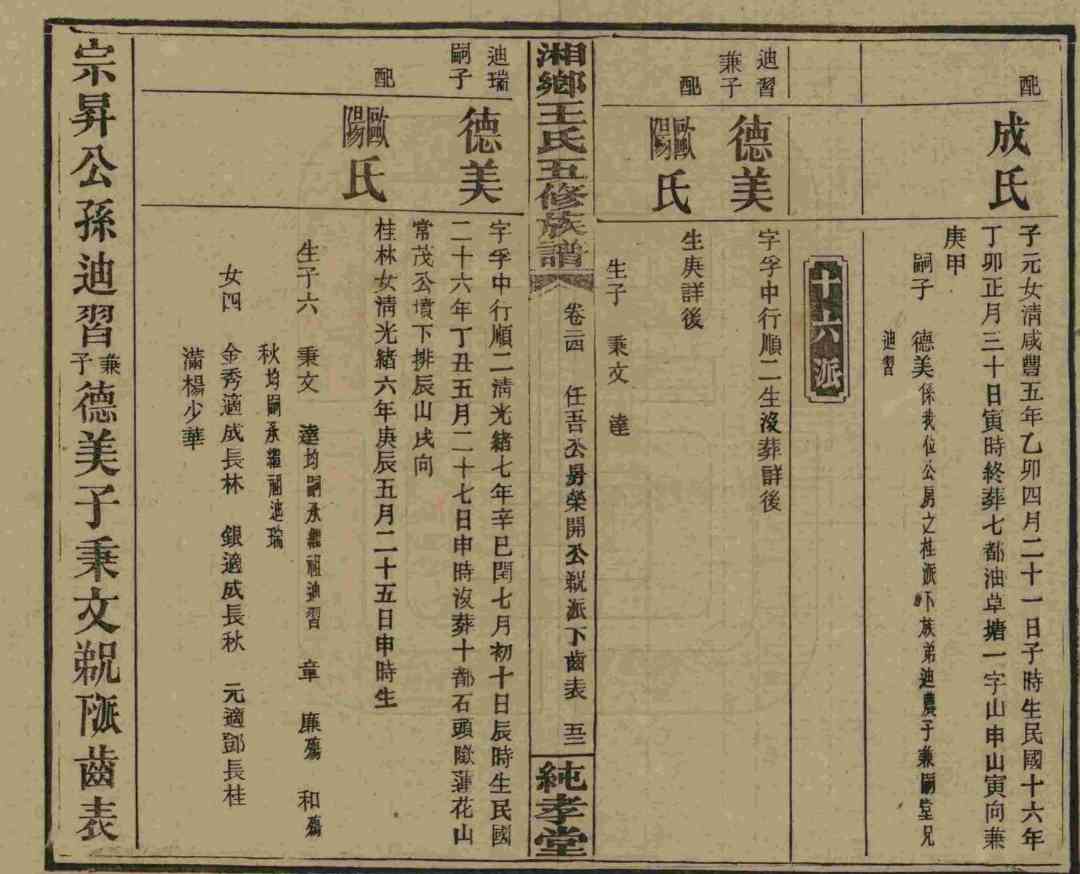 配
成氏
子元女清咸豐五年乙卯四月二十一日子時生民國十六年
丁卯正月三十日寅時終葬七都油草塘一字山申山寅向兼
庚甲
嗣子 德美係我位公房之桂派下族弟迪農子兼嗣堂兄
迪習
十六派
迪習
兼子
德美
字孚中行順二生沒葬詳後
配
歐陽氏
生庚詳後
生子 秉文 達
湘鄉王氏五修族譜 卷二四 任吾公房榮開公派下齒表 五三 純孝堂
迪瑞
嗣子
德美
字孚中行順二清光緒七年辛巳閏七月初十日辰時生民國
二十六年丁丑五月二十七日申時沒葬十都石頭嶺蓮花山
常茂公墳下排辰山戌向
配
歐陽氏
桂林女清光緒六年庚辰五月二十五日申時生
生子六 秉文 達均嗣承繼祖迪習 章 廉殤 和殤
秋均嗣承繼祖迪瑞
女四 金秀適成長林 銀適成長秋 元適鄧長桂
滿楊少華
宗昇公孫迪習兼子德美子秉文派下齒表